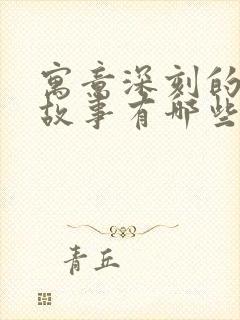 寓意深刻的
故事有哪些
青丘